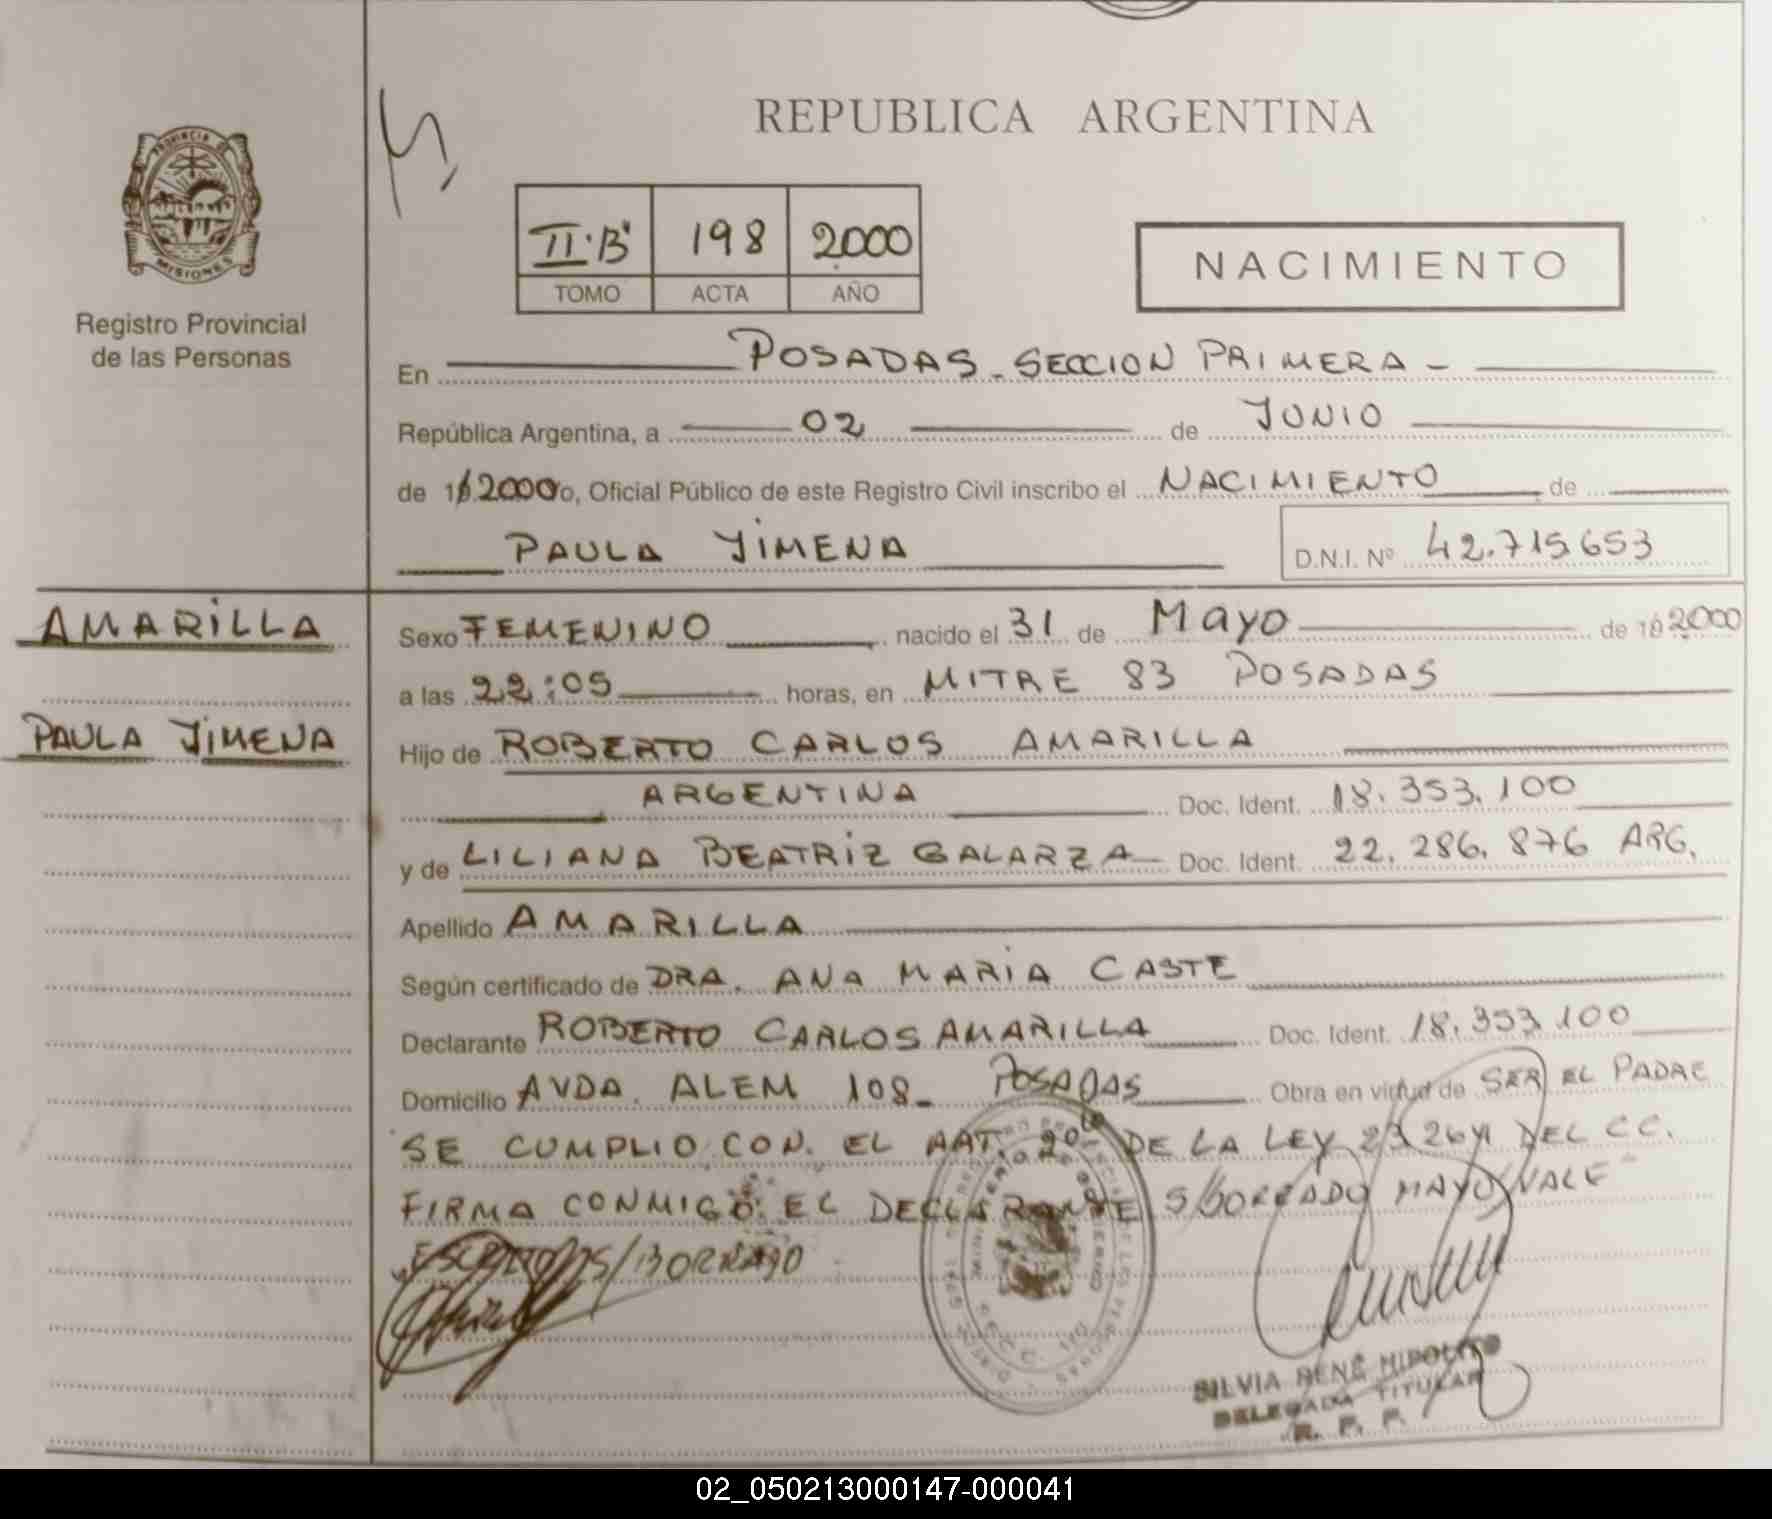 REPUBLICA ARGENTINA
PROVINCIA DE
MISIONES
Registro Provincial
de las Personas
II "B" 198 2000
TOMO ACTA AÑO
NACIMIENTO
En POSADAS - SECCION PRIMERA -
República Argentina, a 02 de JUNIO
de 2000 o, Oficial Público de este Registro Civil inscribo el NACIMIENTO de
PAULA JIMENA
D.N.I. Nº 42.715653
AMARILLA
PAULA JIMENA
Sexo FEMENINO nacido el 31 de Mayo de 2000
a las 22:05 horas, en MITRE 83 POSADAS
Hijo de ROBERTO CARLOS AMARILLA
ARGENTINA Doc. Ident. 18.353.100
y de LILIANA BEATRIZ GALARZA Doc. Ident. 22.286.876 ARG.
Apellido AMARILLA
Según certificado de DRA. ANA MARIA CASTE
Declarante ROBERTO CARLOS AMARILLA Doc. Ident. 18.353.100
Domicilio AVDA. ALEM 108_ POSADAS Obra en virtud de SER EL PADRE
SE CUMPLIO CON EL ART. 2º DE LA LEY DEL C.C.
FIRMA CONMIGO EL DECLARANTE S/BORRADO MAYO VALE
S/BORRADO
SILVIA RENÉ HIPOLITO
DELEGADA TITULAR
R. P. P.
02_050213000147-000041